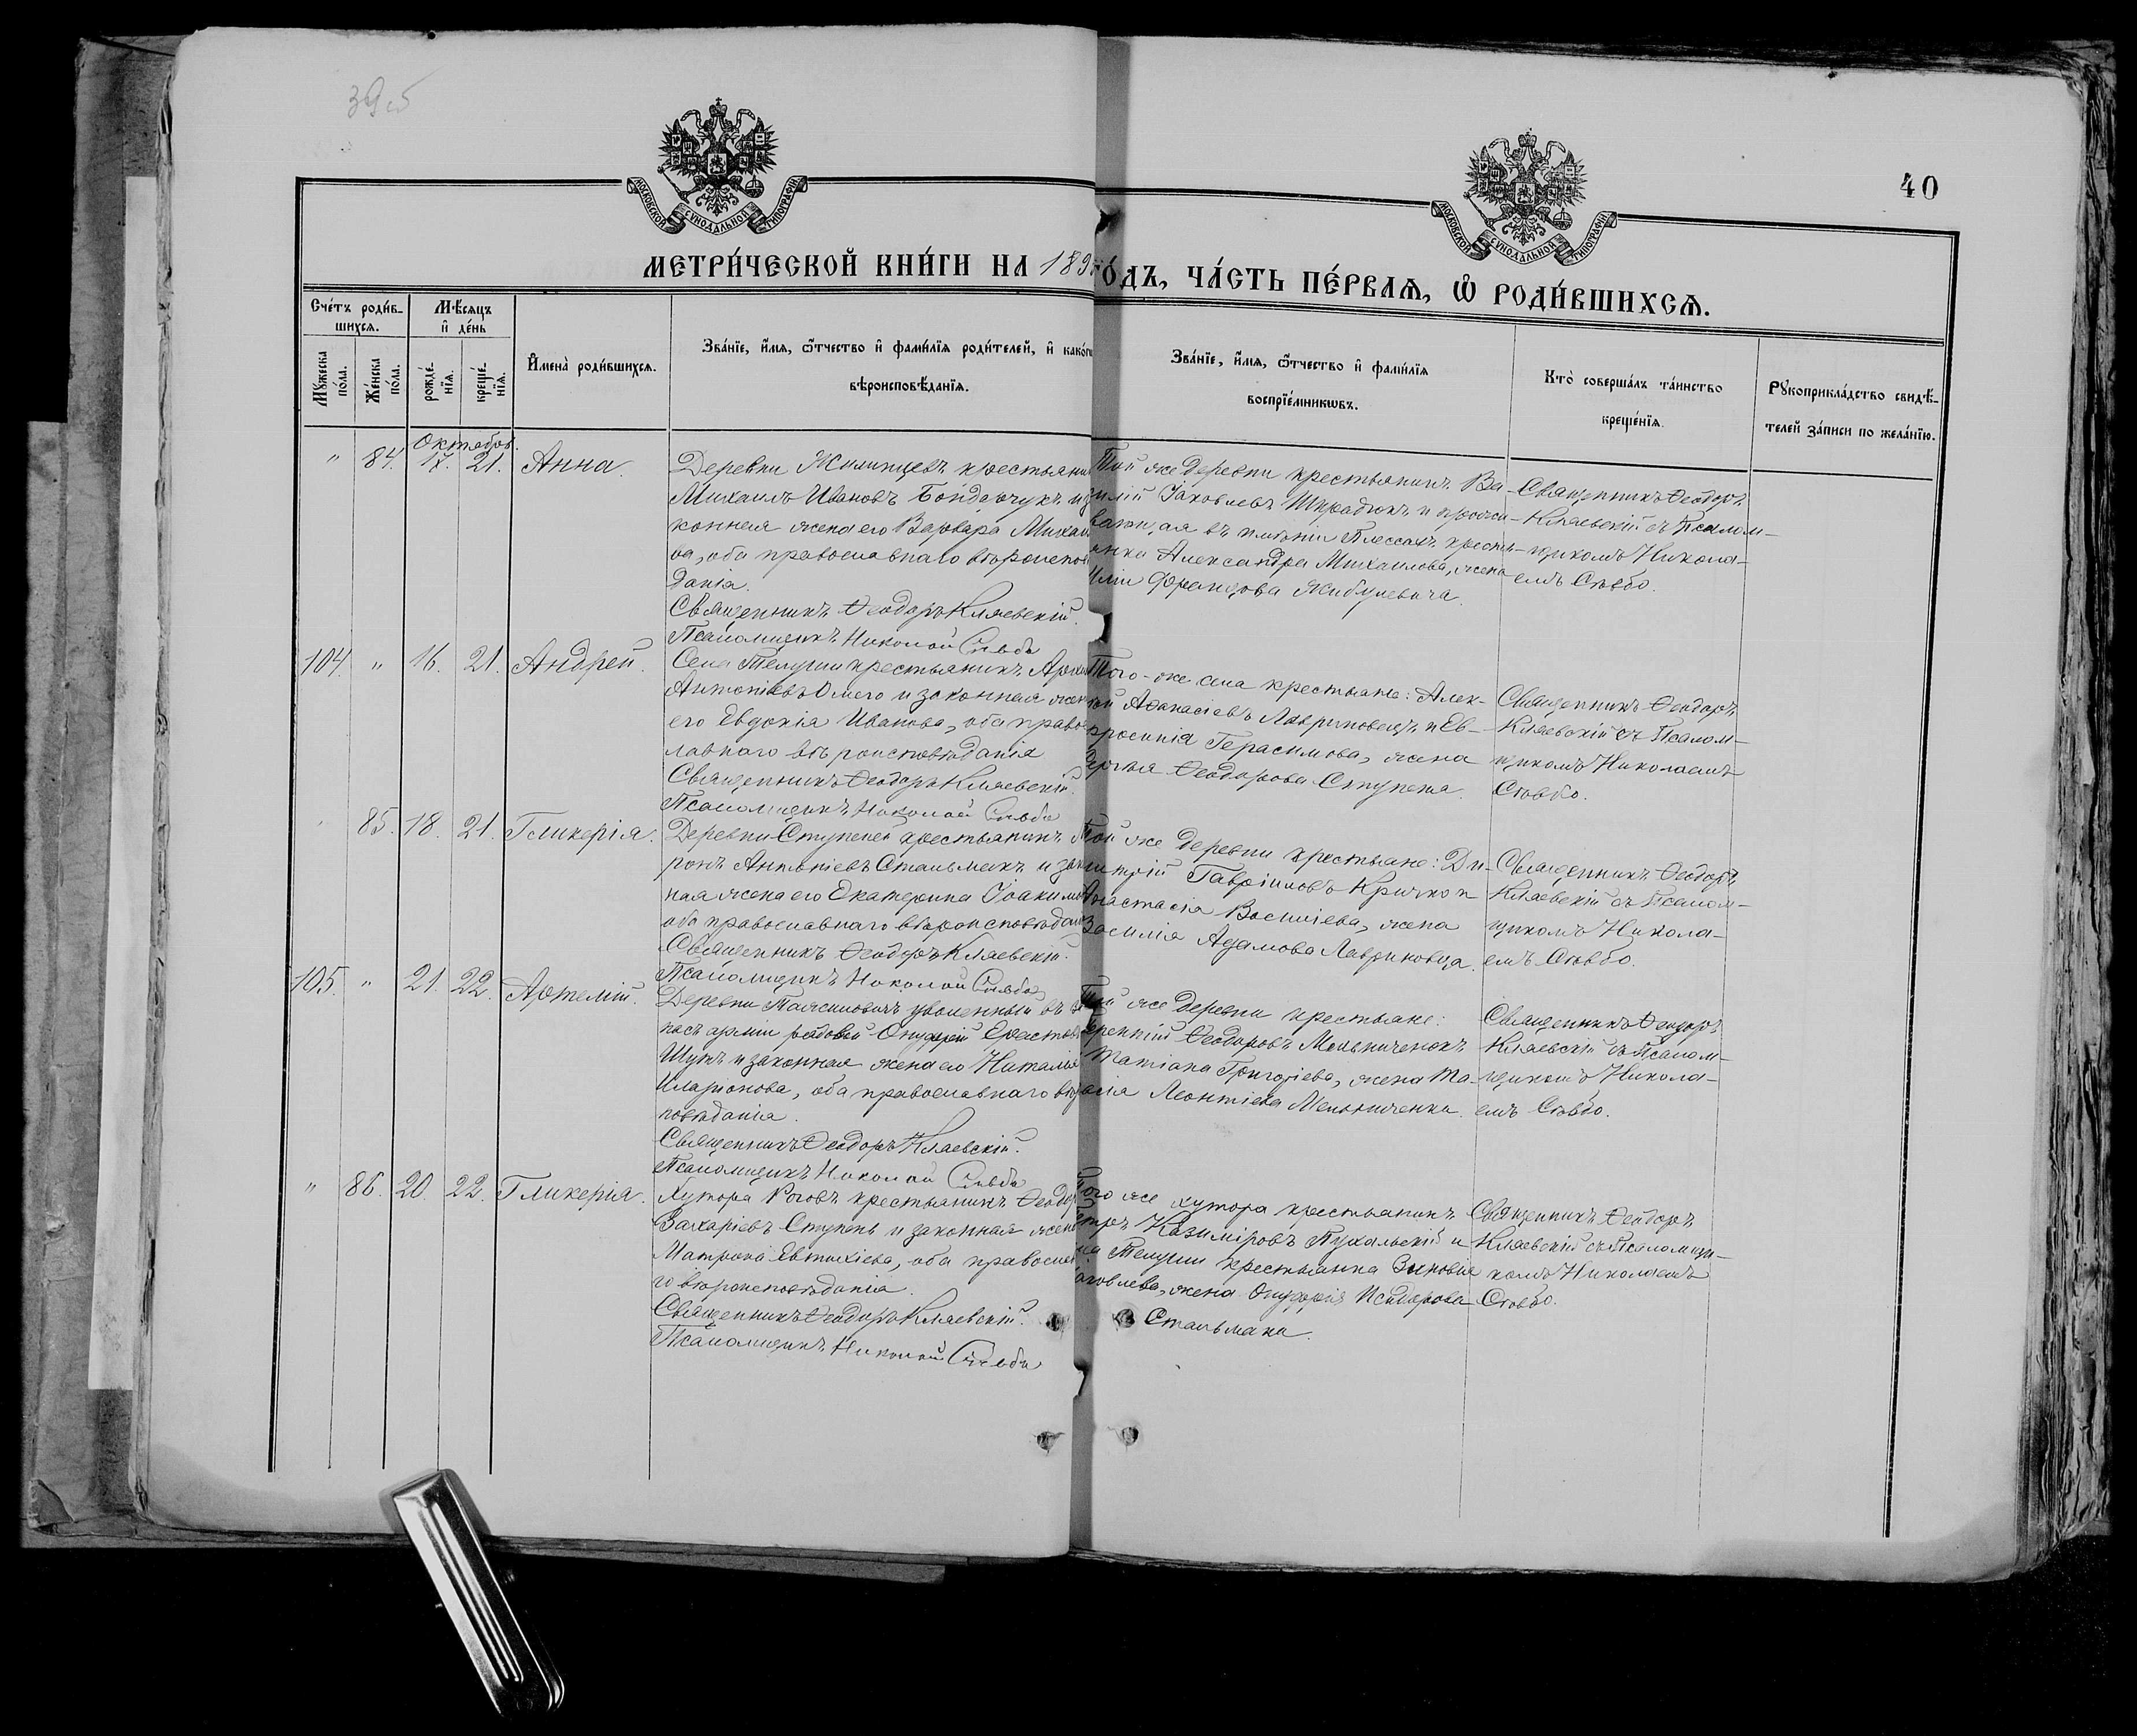 39об
40
МОСКОВСКОЙ СѴНОДАЛЬНОЙ ТИПОГРАФІИ
МОСКОВСКОЙ СѴНОДАЛЬНОЙ ТИПОГРАФІИ
МЕТРИ́ЧЕСКОЙ КНИ́ГИ НА 189
О́ДЪ, ЧА́СТЬ ПЕ́РВАѦ, Ѡ҆ РОДИ́ВШИХСѦ.
Сче́тъ роди́в-
шихся.
Мѣ́сяцъ
и҆ де́нь
Мꙋ́жеска по́ла.
Же́нска по́ла.
рожде́-
нїѧ.
креще́-
нїѧ.
И҆мена̀ роди́вшихся.
Зва́нїе, и҆́мѧ, ѿ́тчество и҆ фами́лїѧ роди́телей, и҆ како́гѡ
вѣроисповѣ́данїѧ.
Зва́нїе, и҆́мѧ, ѿ́тчество и҆ фами́лїѧ
воспрїе́мникѡвъ.
Кто̀ соверша́лъ та́инство
креще́нїѧ.
Рꙋкоприкла́дство свидѣ́-
телей за́писи по жела́нїю.
Октябрь
" 84. 17. 21. Анна.
Деревни Жилинцевъ крестьянин
Михаилъ Ивановъ Бондарчукъ и за
конная жена его Варвара Михаи
ва, оба православнаго вѣроисповѣ
данія.
Священникъ Ѳеодоръ Кляевскій.
Псаломщикъ Николай
Той же деревни крестьянинъ Ва-
силій Іаковлевъ и прожи-
вающая въ имѣніи крестья-
янка Александра Михаилова, жена
Францова Жибулевича.
Священникъ Ѳеодоръ
Кляевскій съ Псалом-
щикомъ Никола-
емъ
104. " 16. 21. Андрей.
Села Телуши крестьянинъ
Антоніевъ и законная жен
его Евдокія Иванова, оба правос
лавнаго вѣроисповѣданія
Священникъ Ѳеодоръ Кляевскій.
Псаломщикъ Николай
Того-же села крестьяне: Алек-
Аѳанасіевъ Лавриновецъ и Ев-
фросинія Герасимова, жена
Ѳеодорова Ступеня.
Священникъ Ѳеодоръ
Кляевскій съ Псалом-
щикомъ Николаемъ
85. 18. 21. Гликерія.
Деревни Ступеней крестьянинъ
ронъ Антоніевъ Стальмакъ и закон
ная жена его Екатерина Іоакимова
оба православнаго вѣроисповѣдан
Священникъ Ѳеодоръ Кляевскій.
Псаломщикъ Николай
Той же деревни крестьяне: Ди-
митрій Гавріиловъ Кричко и
Анастасія Василіева, жена
Василія Адамова Лавриновца.
Священникъ Ѳеодоръ
Кляевскій съ Псалом-
щикомъ Никола-
емъ
105. " 21. 22. Артемій.
Деревни уволенный въ за
пасъ арміи рядовой Онуфрій
и законная жена его Наталія
Иларионова, оба православнаго вѣр
повѣданія.
Священникъ Ѳеодоръ Кляевскій.
Псаломщикъ Николай
Той же деревни крестьяне:
Ѳеодоровъ Мельниченокъ
Татіана Григоріева, жена
Леонтіева Мельниченка.
Священникъ Ѳеодоръ
Кляевскій съ Псалом-
щикомъ Никола-
емъ
" 86. 20. 22. Гликерія.
Хутора Роговъ крестьянинъ Ѳеодор
Захаріевъ Ступень и законная жена
Матрона Евтихіева, оба православна
го вѣроисповѣданія.
Священникъ Ѳеодоръ Кляевскій.
Псаломщикъ Николай
Того же хутора крестьянинъ
Петръ Казиміровъ Пухальскій и
Телуши крестьянка Зиновія
Іаковлева, жена Онуфрія Исидорова
Стальмака.
Священникъ Ѳеодоръ
Кляевскій съ Псаломщи-
комъ Николаемъ